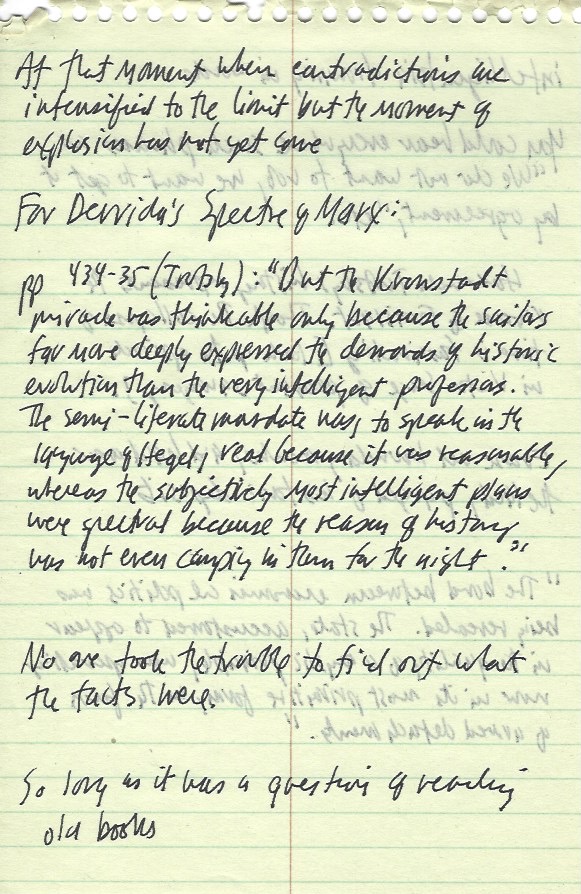 At that moment when contradictions are
intensified to the limit but the moment of
explosion has not yet come
For Derrida's Spectre of Marx:
pp 434-35 (Trotsky): "But the Kronstadt
miracle was thinkable only because the sailors
far more deeply expressed the demands of historic
evolution than the very intelligent professors.
The semi-literate mandate was, to speak in the
language of Hegel, real because it was reasonable,
whereas the subjectively most intelligent plans
were spectral because the reason of history
was not even camping in them for the night."
No one took the trouble to find out what
the facts were.
So long as it was a question of reading
old books